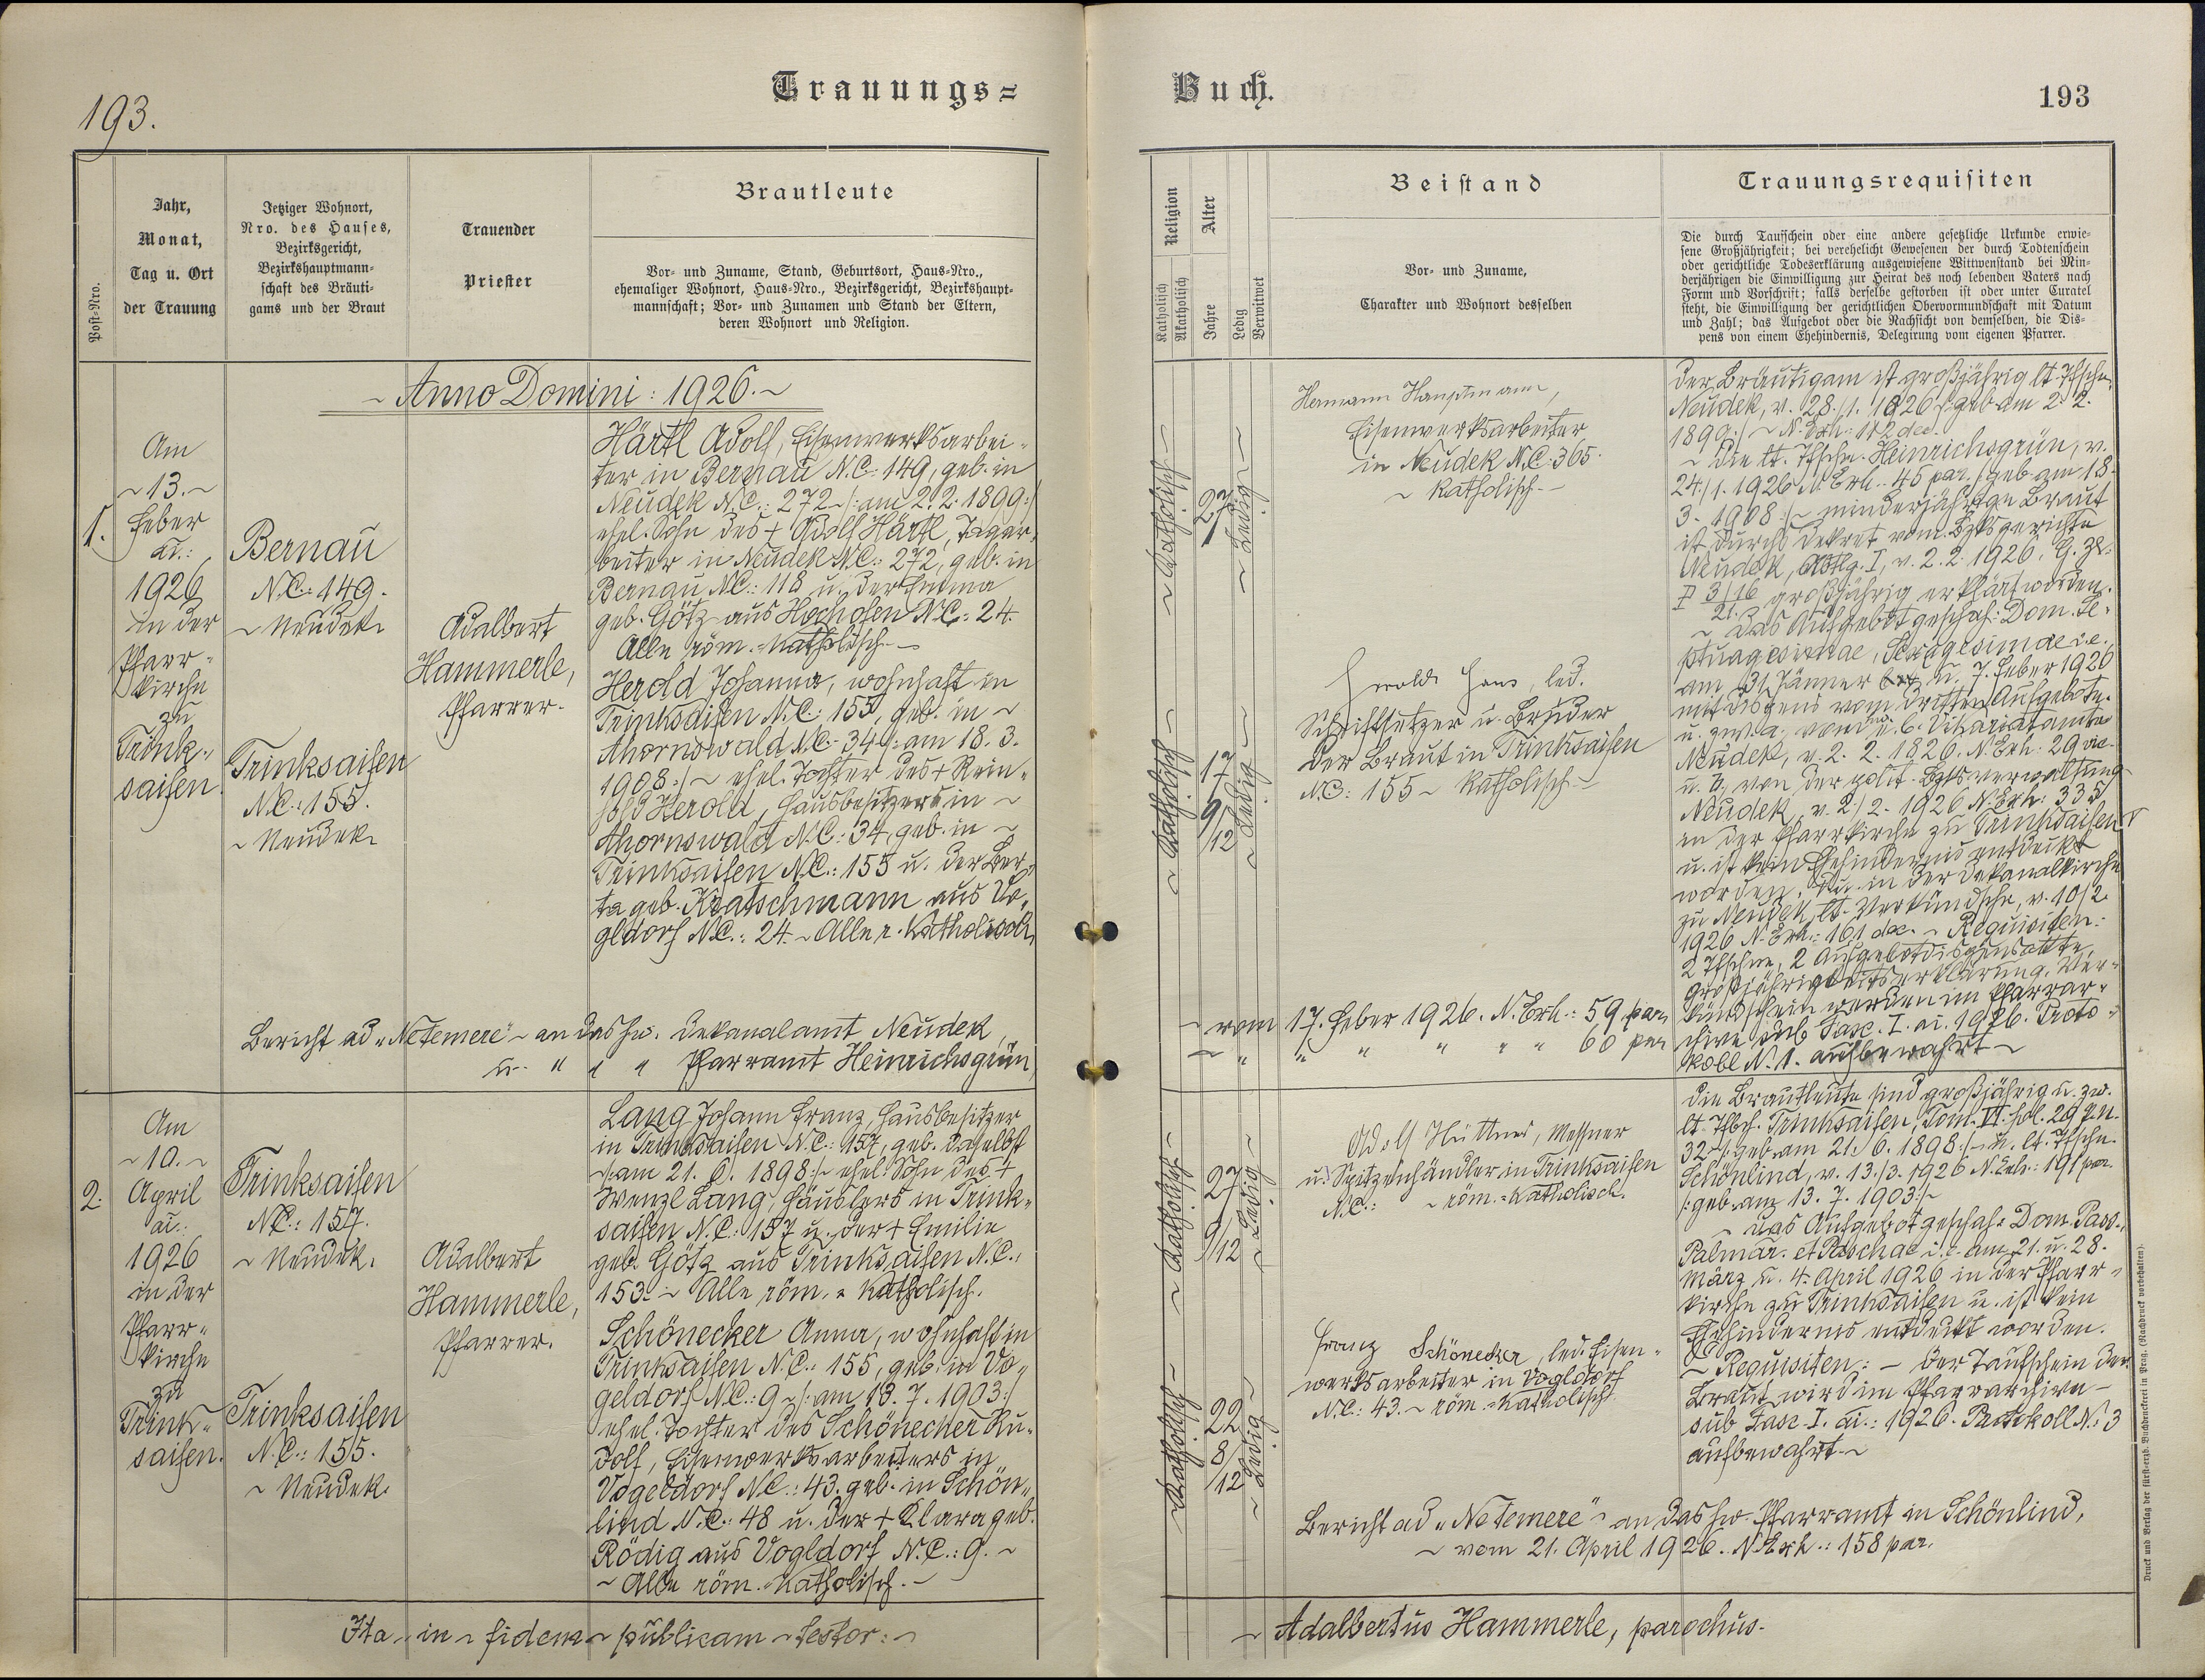 193.
Trauungs=
Buch.
193
Post-Nro.
Jahr,
Monat,
Tag u. Ort
der Trauung
Jetziger Wohnort,
Nro. des Hauses,
Bezirksgericht,
Bezirkshauptmann-
schaft des Bräuti-
gams und der Braut
Trauender
Priester
Brautleute
Vor- und Zuname, Stand, Geburtsort, Haus-Nro.,
ehemaliger Wohnort, Haus-Nro., Bezirksgericht, Bezirkshaupt-
mannschaft; Vor- und Zunamen und Stand der Eltern,
deren Wohnort und Religion.
Religion
Katholisch
Akatholisch
Alter
Jahre
Ledig
Verwitwet
Beistand
Vor- und Zuname,
Charakter und Wohnort desselben
Trauungsrequisiten
Die durch Taufschein oder eine andere gesetzliche Urkunde erwie-
sene Großjährigkeit; bei verehelicht Gewesenen der durch Todtenschein
oder gerichtliche Todeserklärung ausgewiesene Wittwenstand bei Min-
derjährigen die Einwilligung zur Heirat des noch lebenden Vaters nach
Form und Vorschrift; falls derselbe gestorben ist oder unter Curatel
steht, die Einwilligung der gerichtlichen Obervormundschaft mit Datum
und Zahl; das Aufgebot oder die Nachsicht von demselben, die Dis-
pens von einem Ehehindernis, Delegirung vom eigenen Pfarrer.
~ Anno Domini: 1926. ~
1.
Am
~ 13. ~
Feber
ai.:
1926
in der
Pfarr-
kirche
zu
Trink-
saifen.
Bernau
N.C.: 149.
~ Neudek
Trinksaifen
N.C.: 155.
~ Neudek
Adalbert
Hammerle,
Pfarrer.
Härtl Adolf, Eisenwerksarbei-
ter in Bernau N.C. 149, geb. in
Neudek N.C.: 272 ~ /: am 2. 2. 1899 :/
ehel. Sohn des + Adolf Härtl, Tagar-
beiter in Neudek N.C.: 272, geb. in
Bernau N.C.: 118 u. der Emma
geb. Götz aus Hochofen N.C.: 24.
Alle röm.-katholisch. ~
Herold Johanna, wohnhaft in
Trinksaifen N.C.: 155, geb. in ~
Ahornswald N.C. 34 /: am 18. 3.
1908 :/ ~ ehel. Tochter des + Rein-
hold Herold, Hausbesitzers in ~
Ahornswald N.C.: 34, geb. in ~
Trinksaifen N.C.: 155 u. der Ber-
ta geb. Kratschmann aus Vo-
gldorf N.C.: 24. ~ Alle r. katholisch.
~ Katholisch ~
27
~ Ledig ~
Hermann Hauptmann,
Eisenwerksarbeiter
in Neudek N.C.: 365.
~ Katholisch. ~
~ Katholisch ~
17
9/12
~ Ledig ~
Herold Hans, led.
Schriftsetzer u. Bruder
der Braut in Trinksaifen
N.C.: 155 ~ Katholisch. ~
Der Bräutigam ist großjährig lt. Tfschn.
Neudek, v. 28./1. 1926 /: geb. am 2. 2.
1899 :/ ~ N. Exh.: 112 dec.
~ Die lt. Tfschn. Heinrichsgrün, v.
24./1. 1926 N. Exh.: 45 par. /: geb. am 18.
3. 1908 :/ ~ minderjährige Braut
ist durchs Dekret vom Bzksgerichte
Neudek, Abtlg. I, v. 2. 2. 1926, G. Zl.
P 3/16 großjährig erklärt worden.
21.
~ Das Aufgebot geschah: Dom. Se-
ptuagesimae, Sexagesimae i. e.
am 31. Jänner u. 7. Feber 1926
mit Dispens vom dritten Aufgebote
u. zw. a. vom b. Vikariatamte
Neudek, v. 2. 2. 1926. N. Exh. 29 vic.
u. b, von der polit. Bzksverwaltung
Neudek, v. 2./2. 1926 N. Exh.: 335
in der Pfarrkirche zu Trinksaifen
u. ist kein Ehehindernis entdeckt
worden, in der Dekanalkirche
zu Neudek, lt. Verkündschn. v. 10/2.
1926 N. Exh.: 161 dec. ~ Requisiten:
2 Tfschne, 2 Aufgebotsdispensakte,
Großjährigkeitserklärung, Ver-
kündschein werden im Pfarrar-
chive sub Fasc. I. ai. 1926. Proto-
koll N. 1. aufbewahrt ~
Bericht ad „Ne temere" ~ an das hw. Dekanalamt Neudek, ~ vom 17. Feber 1926. N. Exh.: 59 par.
u. " " " Pfarramt Heinrichsgrün, ~ " " " " " " 60 par
2.
Am
~ 10. ~
April
ai.:
1926
in der
Pfarr-
kirche
zu
Trink-
saifen.
Trinksaifen
N.C.: 157.
~ Neudek.
Trinksaifen
N.C.: 155.
~ Neudek.
Adalbert
Hammerle,
Pfarrer.
Lang Johann Franz, Hausbesitzer
in Trinksaifen N.C.: 157, geb. daselbst
~ /: am 21. 6. 1898 :/ ~ ehel. Sohn des +
Wenzl Lang, Häuslers in Trink-
saifen N.C.: 157 u. der + Emilie
geb. Götz aus Trinksaifen N.C.:
153. ~ Alle röm.-katholisch.
Schönecker Anna, wohnhaft in
Trinksaifen N.C.: 155, geb. in Vo-
geldorf N.C.: 9 ~ /: am 13. 7. 1903 :/
ehel. Tochter des Schönecker Ru-
dolf, Eisenwerksarbeiters in
Vogeldorf N.C.: 43. geb. in Schön-
lind N.C.: 48 u. der + Klara geb.
Rödig aus Vogldorf N.C.: 9. ~
~ Alle röm.-katholisch. ~
~ Katholisch ~
27
9/12
~ Ledig ~
Adolf Hüttner, Messner
u. Spitzenhändler in Trinksaifen
N.C.: ~ röm.-katholisch.
~ Katholisch ~
22
8/12
~ Ledig ~
Franz Schönecker, led. Eisen-
werksarbeiter in Vogldorf
N.C.: 43. ~ röm.-katholisch
Die Brautleute sind großjährig u. zw.
lt. Tfbch. Trinksaifen, Tom. VI. fol. 29 p. n.
32 ~ /: geb. am 21. 6. 1898 :/ ~ u. lt. Tfschn.
Schönlind, v. 13./3. 1926 N. Exh.: 191 par.
/: geb. am 13. 7. 1903 :/ ~
~ Das Aufgebot geschah: Dom. Pass.,
Palmar. et Paschae i. e. am 21. u. 28.
März u. 4. April 1926 in der Pfarr-
kirche zu Trinksaifen u. ist kein
Ehehindernis entdeckt worden.
~ Requisiten: ~ Der Taufschein der
Braut wird im Pfarrarchive ~
sub Fasc. I. ai.: 1926. Protokoll N. 3
aufbewahrt. ~
Bericht ad „Ne temere" ~ an das hw. Pfarramt in Schönlind,
~ vom 21. April 1926. N. Exh.: 158 par.
Ita ~ in ~ fidem ~ publicam ~ testor: ~
~ Adalbertus Hammerle, parochus.
Druck und Verlag der fürst-erzb. Buchdruckerei in Prag. (Nachdruck vorbehalten).